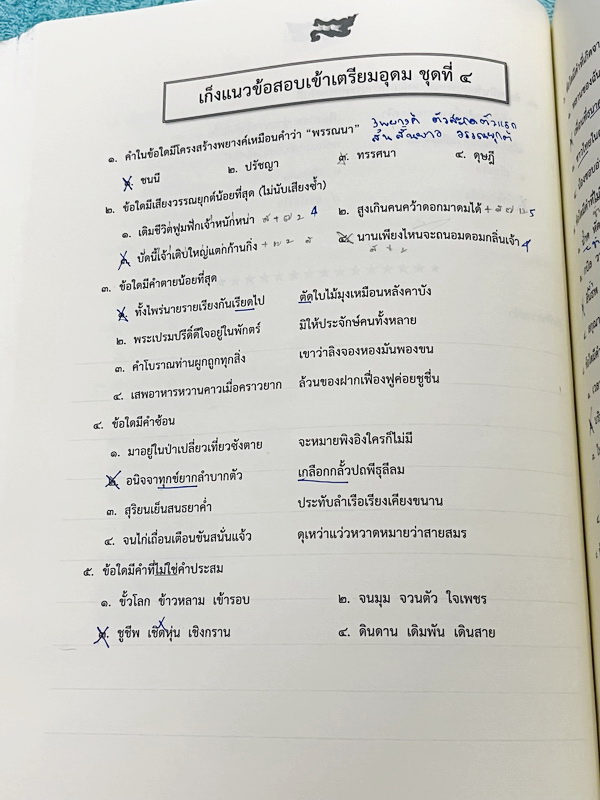 เก็งแนวข้อสอบเข้าเตรียมอุดม ชุดที่ ๔
๑. คำในข้อใดมีโครงสร้างพยางค์เหมือนคำว่า "พรรณนา" 3พยางค์ ตัวสะกดตัวแรก
สั้น สั้น ยาว วรรณยุกต์
๑. ชนนี ๒. ปรัชญา ๓. ทรรศนา ๔. ดุษฎี
๒. ข้อใดมีเสียงวรรณยุกต์น้อยที่สุด (ไม่นับเสียงซ้ำ)
๑. เดิมชีวิตฟูมฟักเจ้าหนักหน่า 4 ๒. สูงเกินคนคว้าดอกมาดมได้ 5
๓. บัดนี้เจ้าเติบใหญ่แตกก้านกิ่ง ๔. นานเพียงไหนจะถนอมดอมกลิ่นเจ้า 4
๓. ข้อใดมีคำตายน้อยที่สุด
๑. ทั้งไพร่นายรายเรียงกันเรียดไป ตัดใบไม้มุงเหมือนหลังคาบัง
๒. พระเปรมปรีดิ์ดีใจอยู่ในพักตร์ มิให้ประจักษ์คนทั้งหลาย
๓. คำโบราณท่านผูกถูกทุกสิ่ง เขาว่าลิงจองหองมันพองขน
๔. เสพอาหารหวานคาวเมื่อคราวยาก ล้วนของฝากเฟื่องฟูค่อยชูชื่น
๔. ข้อใดมีคำซ้อน
๑. มาอยู่ในป่าเปลี่ยวเที่ยวซังตาย จะหมายพิงอิงใครก็ไม่มี
๒. อนิจจาทุกข์ยากลำบากตัว เกลือกกลั้วปถพีธุลีลม
๓. สุริยนเย็นสนธยาค่ำ ประทับลำเรือเรียงเคียงขนาน
๔. จนไก่เถื่อนเตือนขันสนั่นแจ้ว ดุเหว่าแว่วหวาดหมายว่าสายสมร
๕. ข้อใดมีคำที่ไม่ใช่คำประสม
๑. ขั้วโลก ข้าวหลาม เข้ารอบ ๒. จนมุม จวนตัว ใจเพชร
๓. ชูชีพ เชิดหุ่น เชิงกราน ๔. ดินดาน เดิมพัน เดินสาย